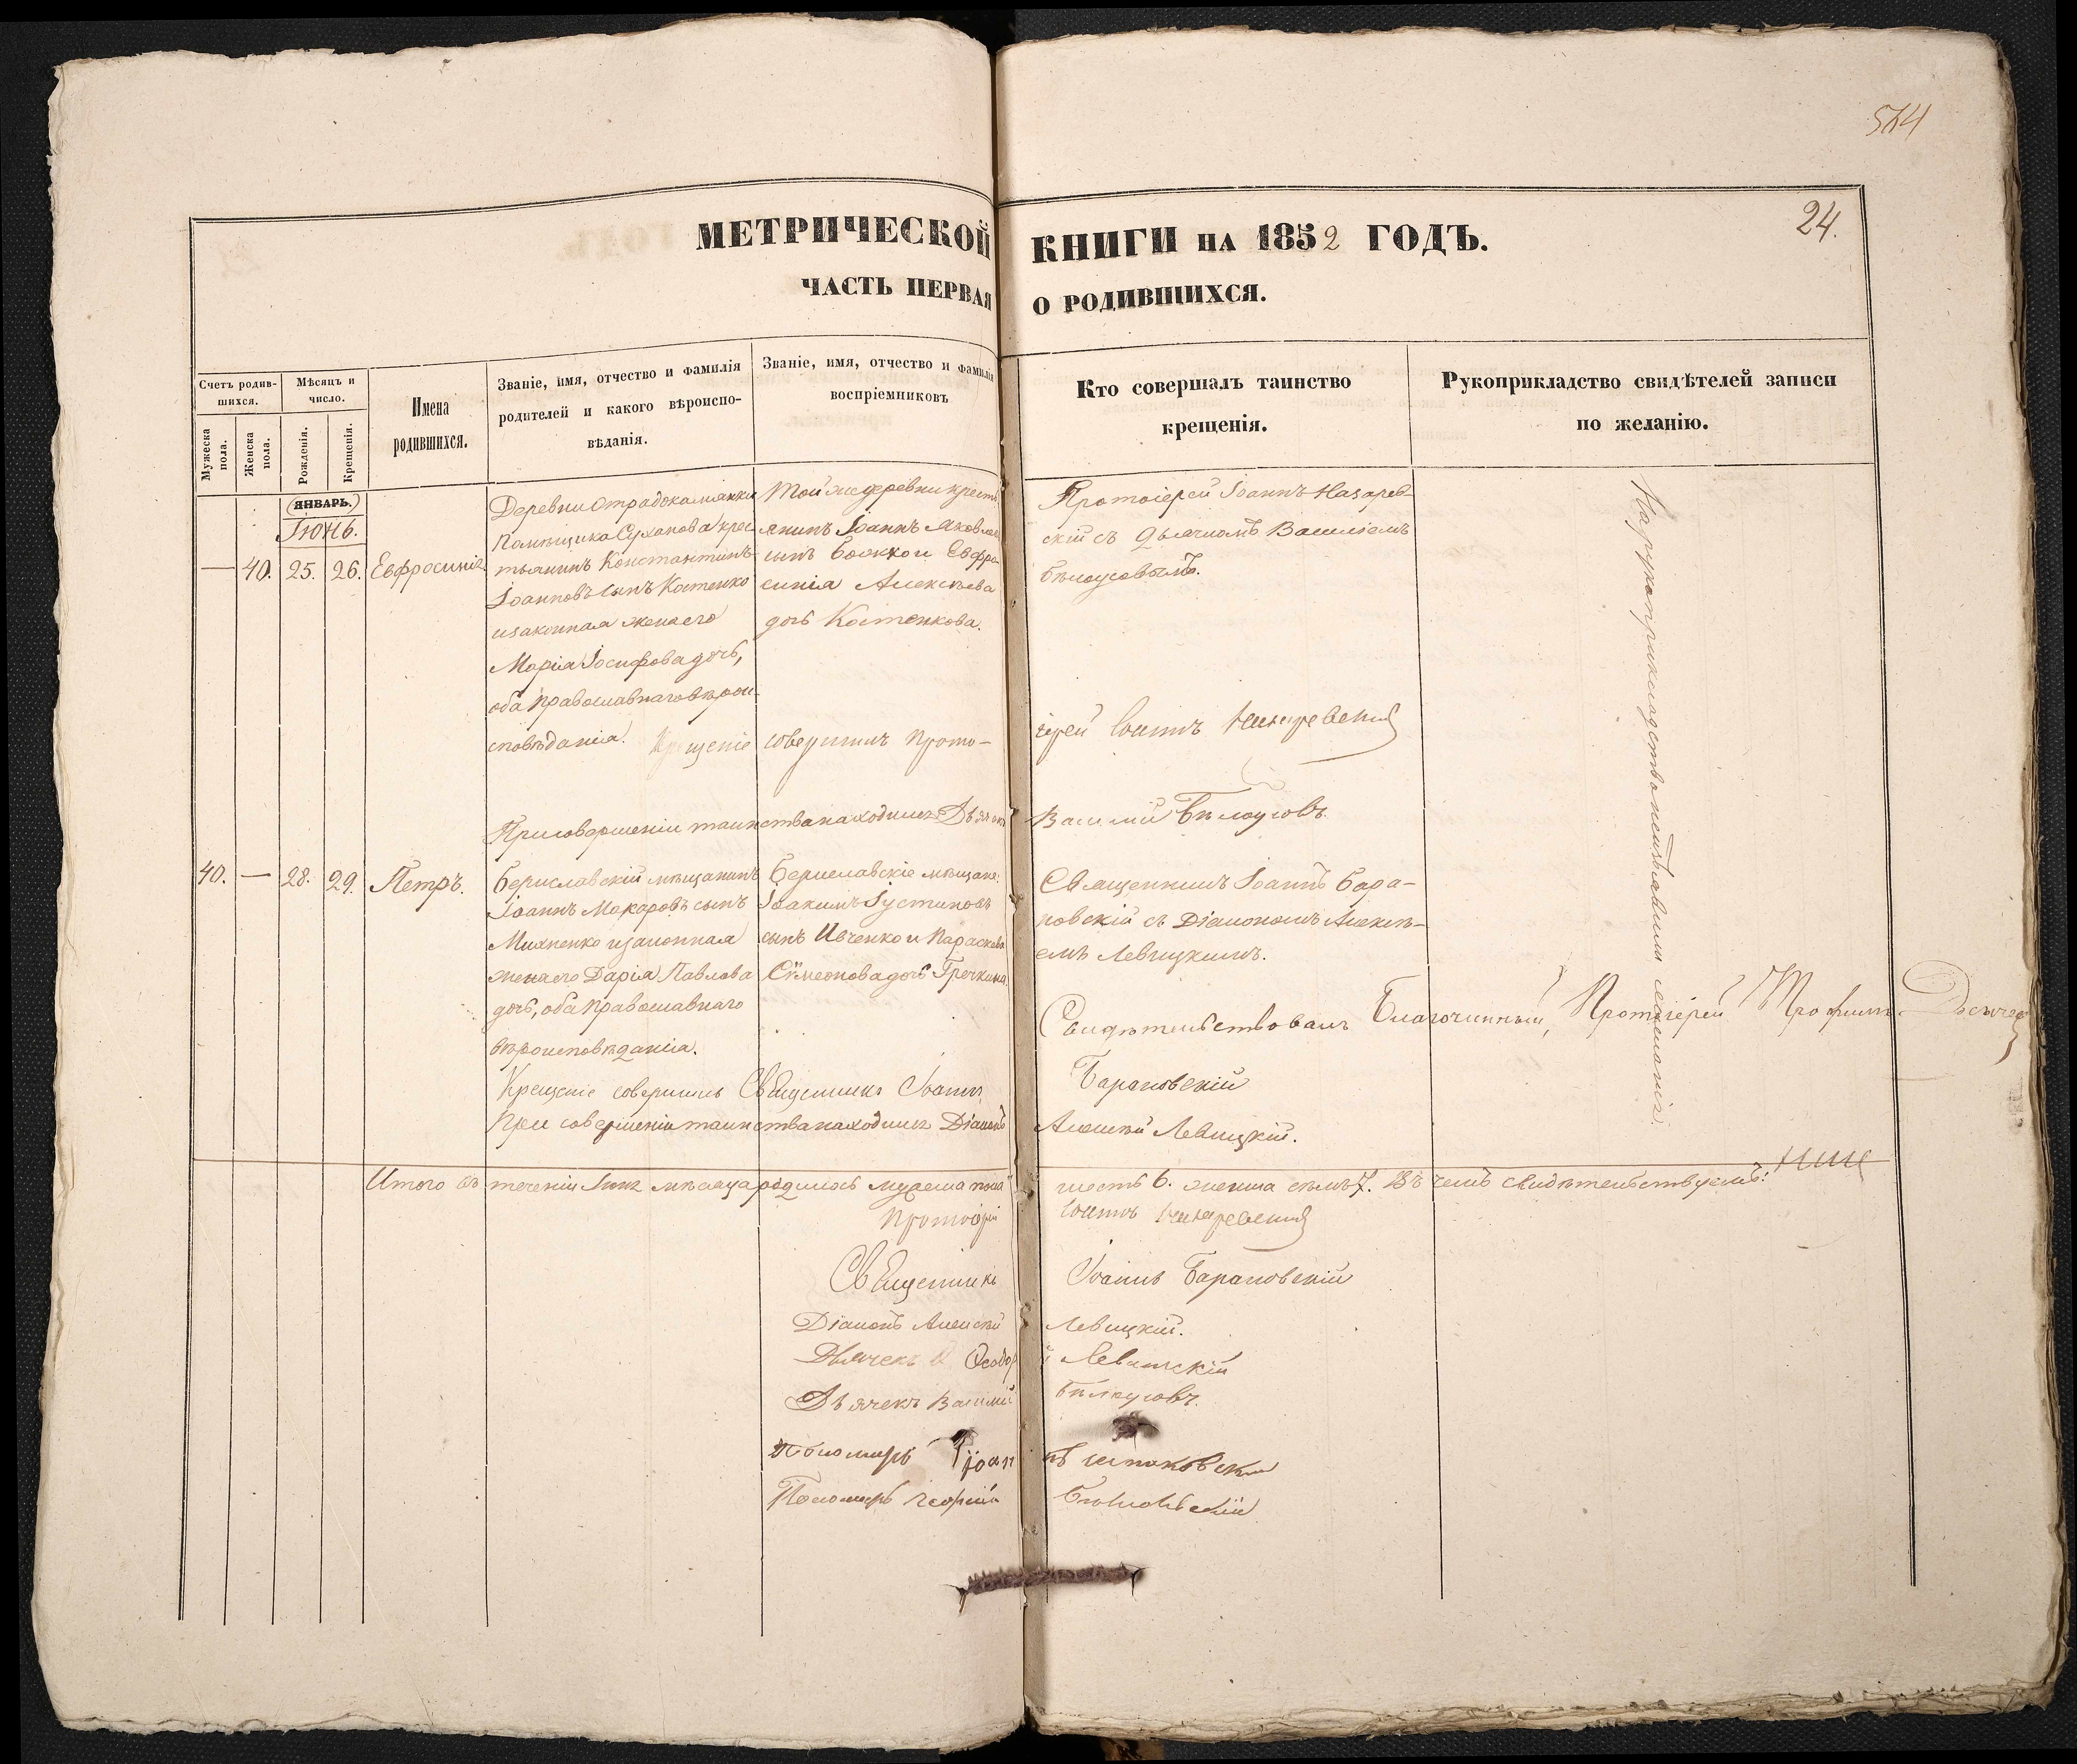 24.
МЕТРИЧЕСКОЙ КНИГИ НА 1852 ГОДЪ.
ЧАСТЬ ПЕРВАЯ О РОДИВШИХСЯ.
Счетъ родив-
шихся.
Мужеска пола.
Женска пола.
Мѣсяцъ и
число.
Рожденія.
Крещенія.
Имена
родившихся.
Званіе, имя, отчество и фамилія
родителей и какого вѣроиспо-
вѣданія.
Званіе, имя, отчество и фамилія
воспріемниковъ
Кто совершалъ таинство
крещенія.
Рукоприкладство свидѣтелей записи
по желанію.
ЯНВАРЬ.
Іюнь.
— 40. 25. 26. Евфросинія
Деревни Отрадокаменки
помѣщика Суханова крес-
тьянинъ Константинъ
Іоанновъ сынъ Костенко
изаконная женаего
Марія Іосифова дочь,
оба православнаго вѣрои-
сповѣданія.
Той же деревни крестъ
янинъ Іоаннъ Яковлевъ
сынъ Божко и Евфро
синія Алексѣева
дочь Костенкова.
Протоіерей Іоаннъ Назарев-
скій съ дьячкомъ Василіемъ
Бѣлоусовымъ.
Крещеніе совершилъ прото-
іерей Іоаннъ Назаревскій
При совершеніи таинства находился Дьячекъ
Василій Бѣлоусовъ.
40. — 28. 29. Петръ.
Бериславскій мѣщанинъ
Іоаннъ Макаровъ сынъ
Михненко изаконная
жена его Дарія Павлова
дочь, оба православнаго
вѣроисповѣданія.
Бериславскіе мѣщане:
Іоакимъ Іустиновъ
сынъ Ивченко и Параскева
Сѵмеонова дочь Гречкина.
Священникъ Іоаннъ Бара-
новскій съ Діакономъ Алексѣ-
емъ Левицкимъ.
Свидѣтельствовалъ Благочинный, Протоіерей Трофимъ
Крещеніе совершилъ Священникъ Іоаннъ Барановскій
При совершеніи таинства находился Діаконъ Алексѣй Левицкій.
На рукоприкладство неизъявили желанія.
Итого въ теченіи Іюня мѣсяца родилось мужеска пола шесть 6. женска семь 7. Въ чемъ свидѣтельствуемъ:
Протоіерей Іоаннъ Назаревскій
Священникъ Іоаннъ Барановскій
Діаконъ Алексѣй Левицкій.
Дьячекъ Ѳеодоръ
Дьячекъ Василій Бѣлоусовъ.
Пономарь Іоаннъ
Пономарь Георгій